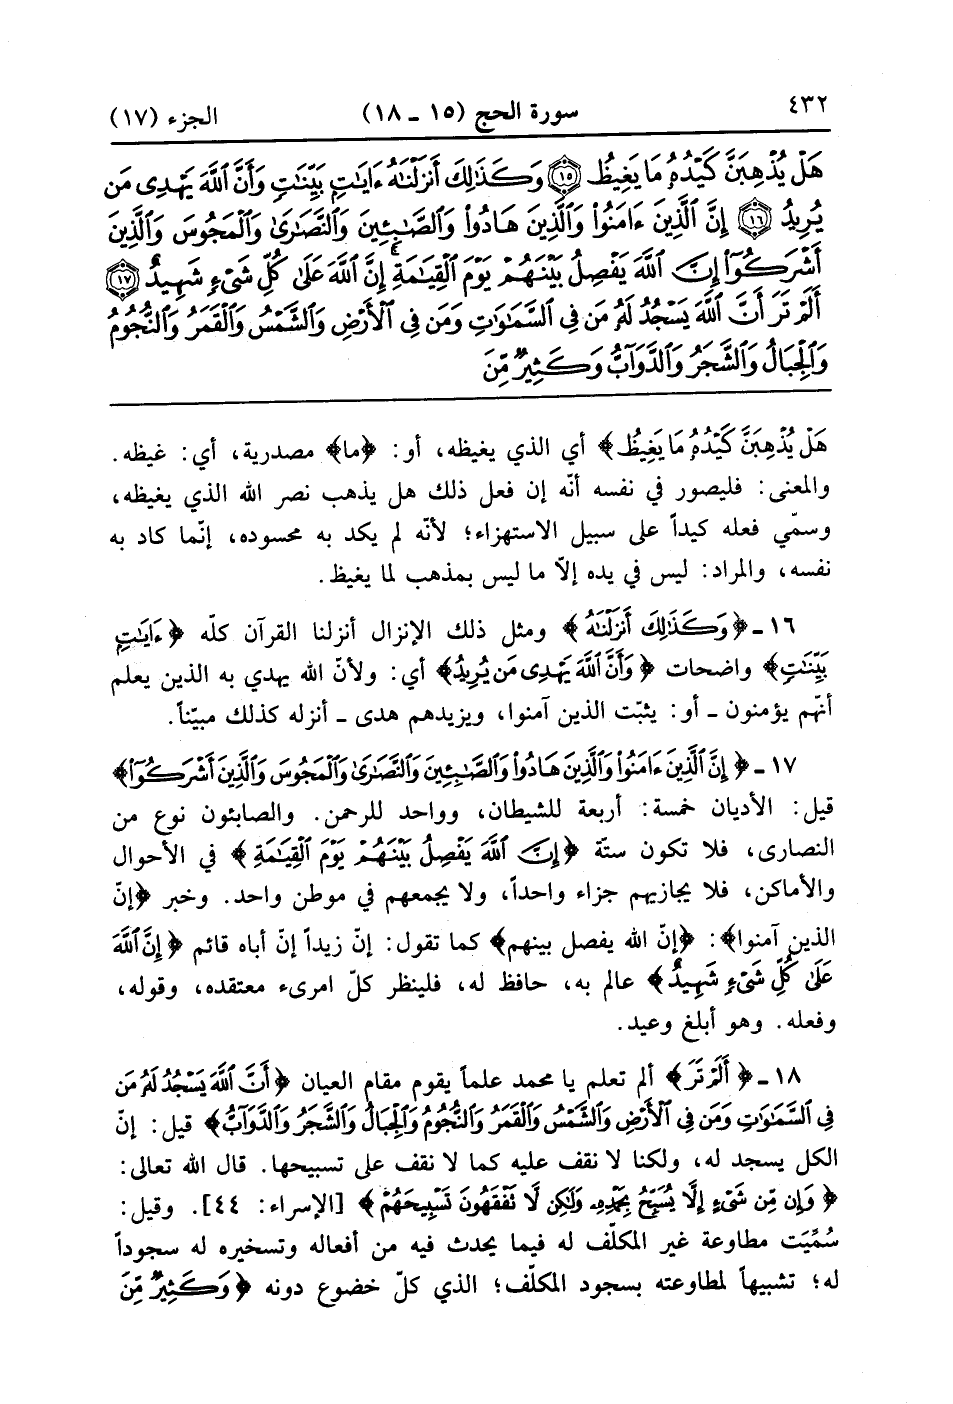 ٤٣٢
سورة الحج (١٥ ـ ١٨)
الجزء (١٧)
هَلْ يُذْهِبَنَّ كَيْدُهُۥ مَا يَغِيظُ ۝١٥ وَكَذَٰلِكَ أَنزَلْنَٰهُ ءَايَٰتٍۭ بَيِّنَٰتٍ وَأَنَّ ٱللَّهَ يَهْدِى مَن
يُرِيدُ ۝١٦ إِنَّ ٱلَّذِينَ ءَامَنُوا۟ وَٱلَّذِينَ هَادُوا۟ وَٱلصَّٰبِـِٔينَ وَٱلنَّصَٰرَىٰ وَٱلْمَجُوسَ وَٱلَّذِينَ
أَشْرَكُوٓا۟ إِنَّ ٱللَّهَ يَفْصِلُ بَيْنَهُمْ يَوْمَ ٱلْقِيَٰمَةِ ۚ إِنَّ ٱللَّهَ عَلَىٰ كُلِّ شَىْءٍ شَهِيدٌ ۝١٧
أَلَمْ تَرَ أَنَّ ٱللَّهَ يَسْجُدُ لَهُۥ مَن فِى ٱلسَّمَٰوَٰتِ وَمَن فِى ٱلْأَرْضِ وَٱلشَّمْسُ وَٱلْقَمَرُ وَٱلنُّجُومُ
وَٱلْجِبَالُ وَٱلشَّجَرُ وَٱلدَّوَآبُّ وَكَثِيرٌ مِّنَ
هَلْ يُذْهِبَنَّ كَيْدُهُۥ مَا يَغِيظُ﴾ أي الذي يغيظه، أو: ﴿ما﴾ مصدرية، أي: غيظه.
والمعنى: فليصور في نفسه أنّه إن فعل ذلك هل يذهب نصر الله الذي يغيظه،
وسمّي فعله كيداً على سبيل الاستهزاء؛ لأنّه لم يكد به محسوده، إنّما كاد به
نفسه، والمراد: ليس في يده إلاّ ما ليس بمذهب لما يغيظ.
١٦ ـ ﴿وَكَذَٰلِكَ أَنزَلْنَٰهُ﴾ ومثل ذلك الإنزال أنزلنا القرآن كلّه ﴿ءَايَٰتٍۭ
بَيِّنَٰتٍ﴾ واضحات ﴿وَأَنَّ ٱللَّهَ يَهْدِى مَن يُرِيدُ﴾ أي: ولأنّ الله يهدي به الذين يعلم
أنّهم يؤمنون ـ أو: يثبّت الذين آمنوا، ويزيدهم هدى ـ أنزله كذلك مبيّناً.
١٧ ـ ﴿إِنَّ ٱلَّذِينَ ءَامَنُوا۟ وَٱلَّذِينَ هَادُوا۟ وَٱلصَّٰبِـِٔينَ وَٱلنَّصَٰرَىٰ وَٱلْمَجُوسَ وَٱلَّذِينَ أَشْرَكُوٓا۟﴾
قيل: الأديان خمسة: أربعة للشيطان، وواحد للرحمن. والصابئون نوع من
النصارى، فلا تكون ستّة ﴿إِنَّ ٱللَّهَ يَفْصِلُ بَيْنَهُمْ يَوْمَ ٱلْقِيَٰمَةِ﴾ في الأحوال
والأماكن، فلا يجازيهم جزاء واحداً، ولا يجمعهم في موطن واحد. وخبر ﴿إنّ
الذين آمنوا﴾: ﴿إنّ الله يفصل بينهم﴾ كما تقول: إنّ زيداً إنّ أباه قائم ﴿إِنَّ ٱللَّهَ
عَلَىٰ كُلِّ شَىْءٍ شَهِيدٌ﴾ عالم به، حافظ له، فلينظر كلّ امرىء معتقده، وقوله،
وفعله. وهو أبلغ وعيد.
١٨ ـ ﴿أَلَمْ تَرَ﴾ ألم تعلم يا محمد علماً يقوم مقام العيان ﴿أَنَّ ٱللَّهَ يَسْجُدُ لَهُۥ مَن
فِى ٱلسَّمَٰوَٰتِ وَمَن فِى ٱلْأَرْضِ وَٱلشَّمْسُ وَٱلْقَمَرُ وَٱلنُّجُومُ وَٱلْجِبَالُ وَٱلشَّجَرُ وَٱلدَّوَآبُّ﴾ قيل: إنّ
الكل يسجد له، ولكنا لا نقف عليه كما لا نقف على تسبيحها. قال الله تعالى:
﴿وَإِن مِّن شَىْءٍ إِلَّا يُسَبِّحُ بِحَمْدِهِۦ وَلَٰكِن لَّا تَفْقَهُونَ تَسْبِيحَهُمْ﴾ [الإسراء: ٤٤]. وقيل:
سُمِّيَت مطاوعة غير المكلّف له فيما يحدث فيه من أفعاله وتسخيره له سجوداً
له؛ تشبيهاً لمطاوعته بسجود المكلّف؛ الذي كلّ خضوع دونه ﴿وَكَثِيرٌ مِّنَ